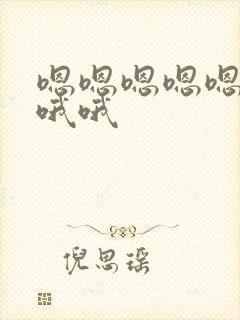 嗯嗯嗯嗯嗯
哦哦
倪思瑶